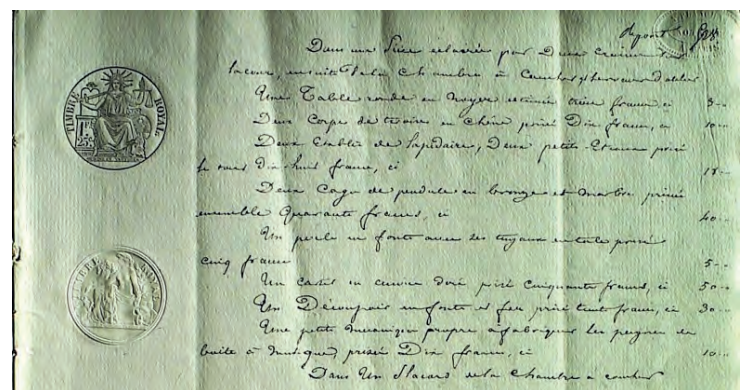 report
Dans une Pièce éclairée par Deux Croisées
la cour, ensuite de la Chambre à Coucher et servant d'atelier
Une Table ronde en noyer estimée trois francs, ci 3 --
Deux Corps de tiroirs en Chêne prisé Dix francs, ci 10 --
Deux Etablis de Lapidaire, Deux petits Etaux prisé
le tout Dix huit francs, ci 18 --
Deux Cages de pendule en bronze et marbre prisée
ensemble Quarante francs, ci 40 --
Un poele en fonte avec ses tuyaux en tole prisé
cinq francs 5 --
Un cartel en cuivre doré prisé Cinquante francs, ci 50 --
Un Découpoir en fonte et fer, prisé trente francs, ci 30 --
Une petite mecanique propre à fabriquer les peignes de
boite à musique, prisée Dix francs, ci 10 --
Dans Un Placard de la Chambre à coucher
TIMBRE ROYAL.
1 F.
25 C.
TIMBRE ROYAL